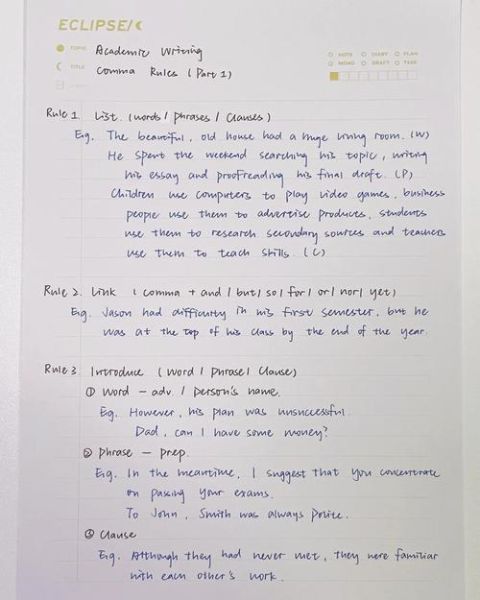 ECLIPSE/
TOPIC Academic Writing
TITLE Comma Rules (Part 1)
NOTE DIARY PLAN
MEMO DRAFT TASK
Rule 1 List (words / phrases / clauses)
Eg. The beautiful, old house had a huge living room. (W)
He spent the weekend searching his topic, writing
his essay and proofreading his final draft. (P)
Children use computers to play video games, business
people use them to advertise products, students
use them to research secondary sources and teachers
use them to teach skills. (C)
Rule 2. Link (comma + and / but / so / for / or / nor / yet)
Eg. Jason had difficulty in his first semester, but he
was at the top of his class by the end of the year.
Rule 3 Introduce (word / phrase / clause)
① word – adv. / person's name.
Eg. However, his plan was unsuccessful.
Dad, can I have some money?
② Phrase – prep.
Eg. In the meantime, I suggest that you concentrate
on passing your exams.
To John, Smith was always polite.
③ Clause
Eg. Although they had never met, they were familiar
with each other's work.